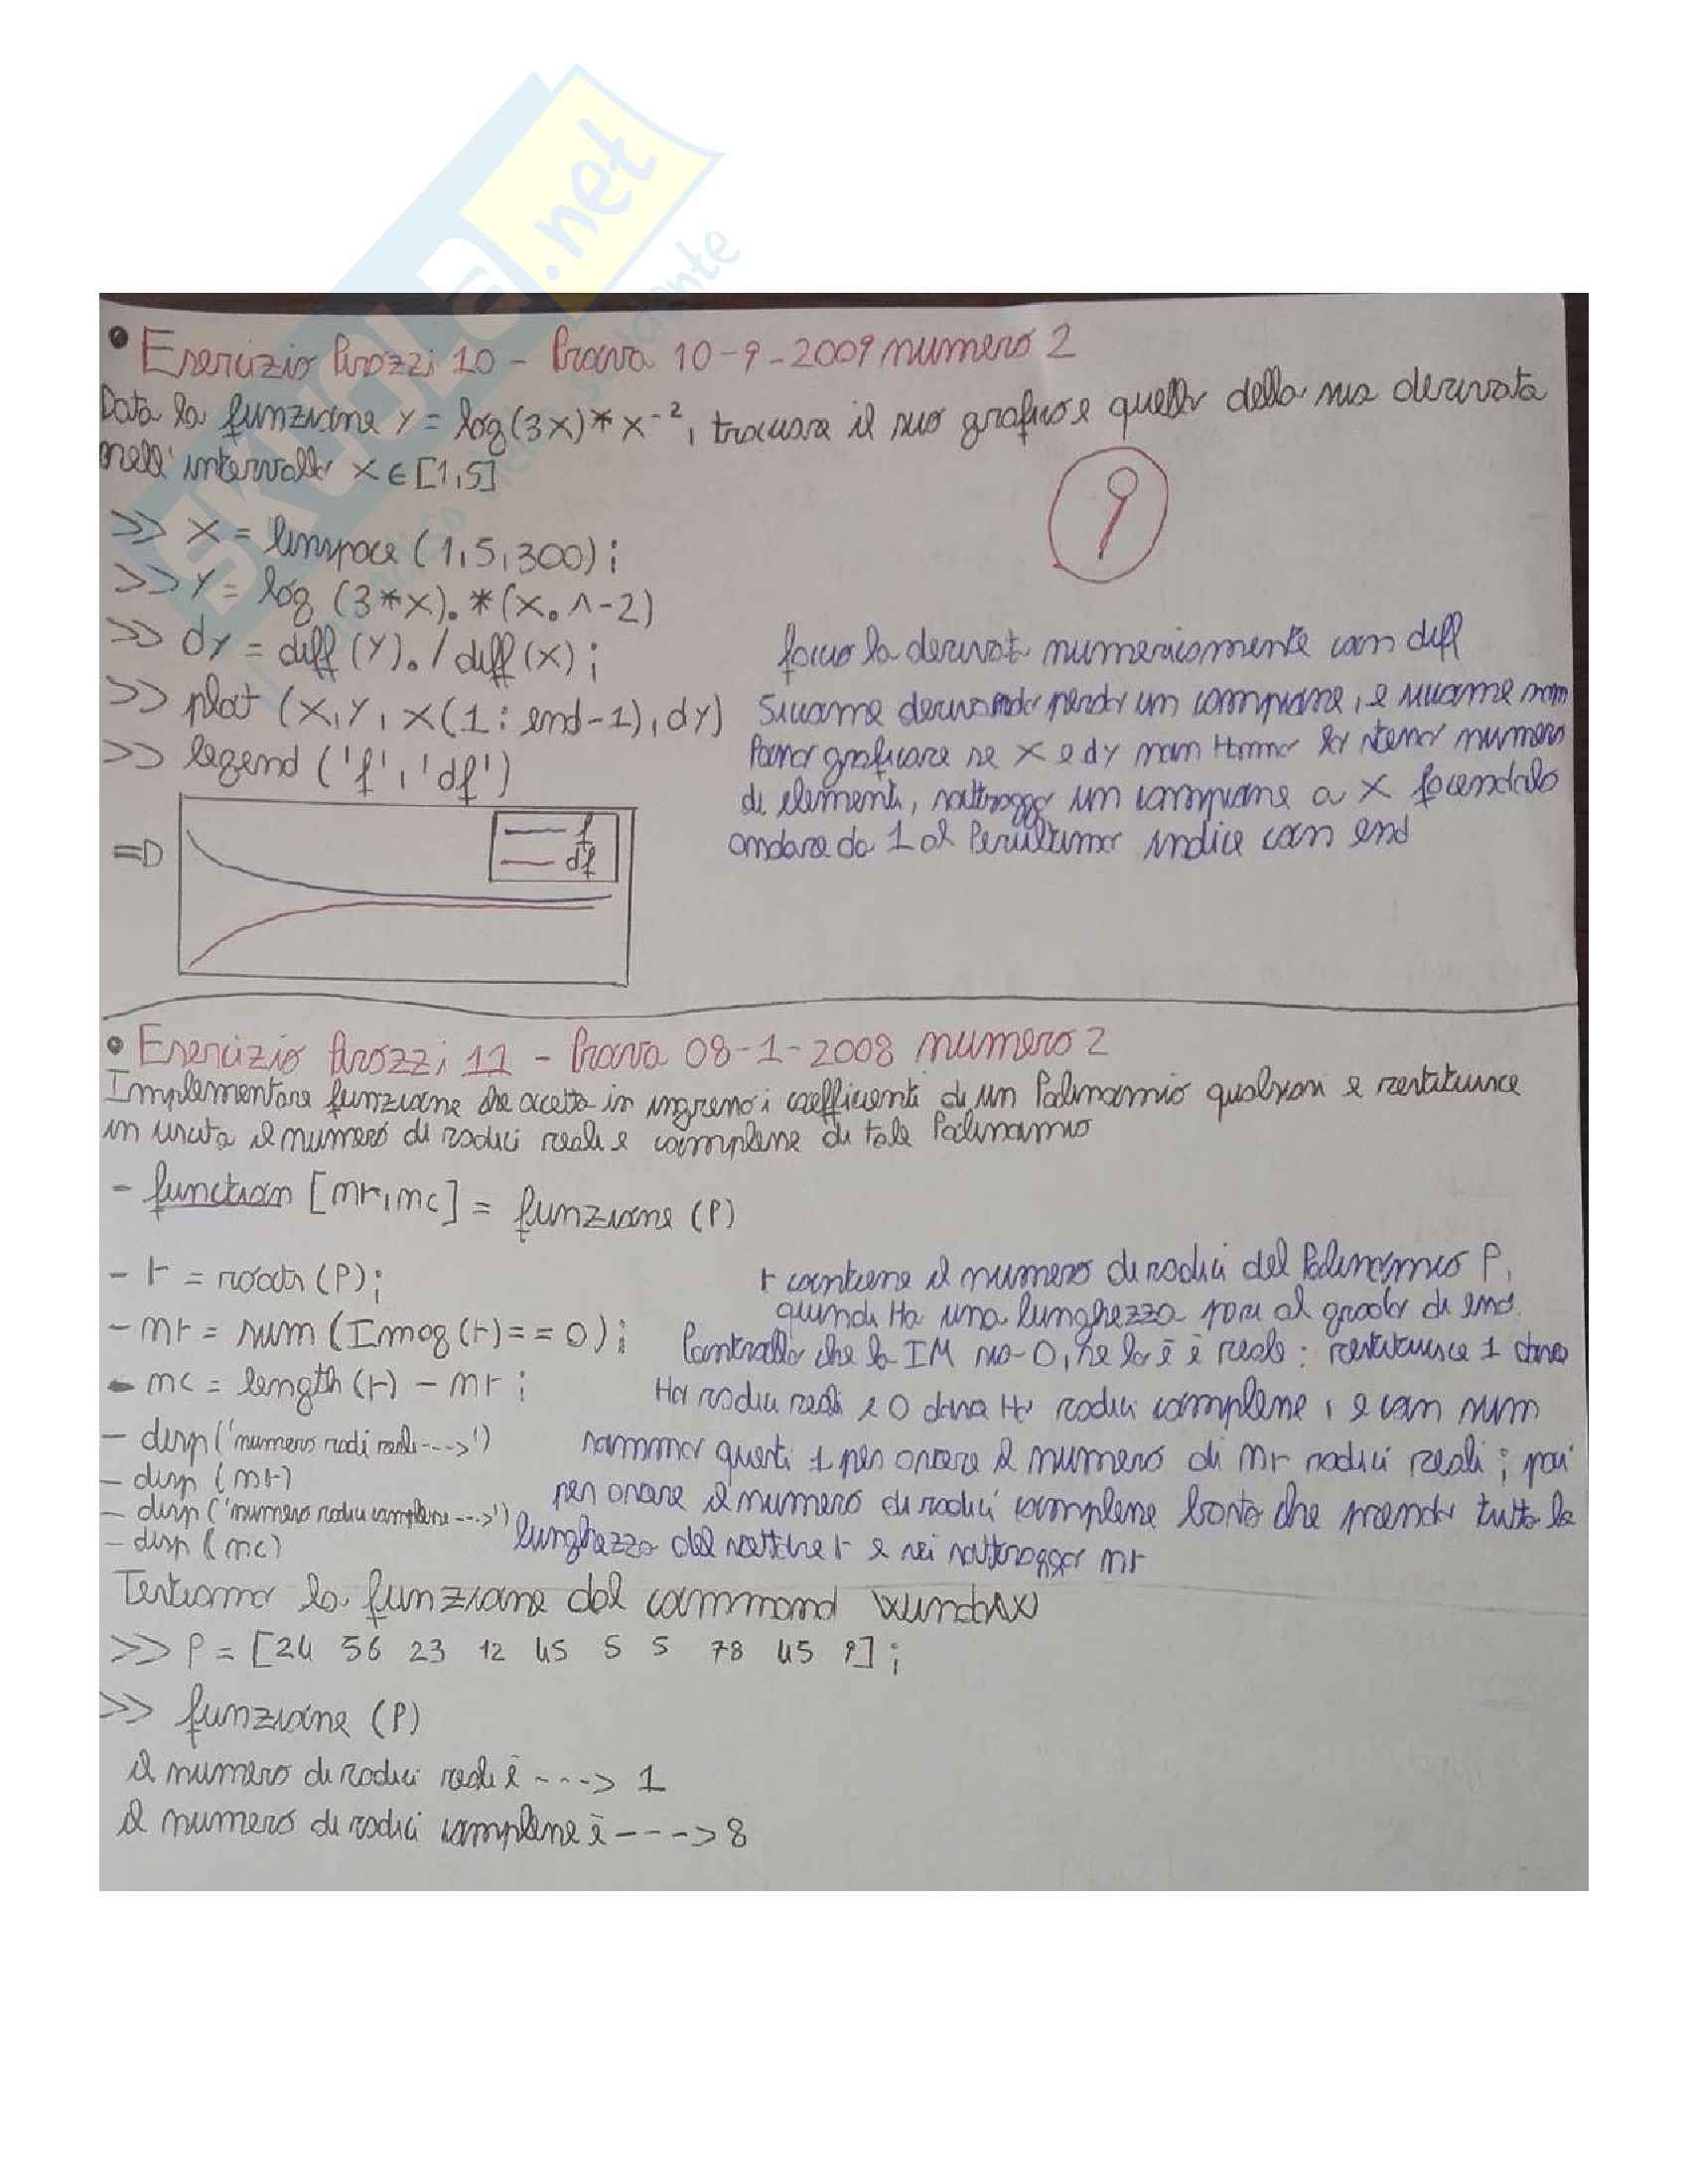 SKUOLA.net
• Esercizio Pirozzi 10 - Prova 10-9-2009 numero 2
Data la funzione y = log(3x)*x⁻², trovare il suo grafico e quello della sua derivata
nell'intervallo x ∈ [1,5]
9
>> x = linspace (1,5,300);
>> y = log (3*x).*(x.^-2)
>> dy = diff (y)./diff(x);
faccio la derivata numericamente con diff
>> plot (x,y,x(1:end-1),dy)
Siccome derivando perdo un campione, e siccome non
>> legend ('f','df')
Posso graficare se x e dy non Hanno lo stesso numero
di elementi, sottraggo un campione a x facendolo
andare da 1 al Penultimo indice con end
=D
f
df
• Esercizio Pirozzi 11 - Prova 08-1-2008 numero 2
Implementare funzione che accetta in ingresso i coefficienti di un Polinomio qualsiasi e restituisce
in uscita il numero di radici reali e complesse di tale Polinomio
- function [nr,nc] = funzione (P)
- r = roots (P);
r contiene il numero di radici del Polinomio P,
quindi Ha una lunghezza pari al grado di esso.
- nr = sum (Imag(r)==0);
Controllo che la IM sia 0, se lo è è reale: restituisce 1 dove
- nc = length (r) - nr;
Ho radici reali e 0 dove Ho radici complesse, e con sum
- disp ('numero radi reali--->')
sommo questi 1 per avere il numero di nr radici reali; poi
- disp (nr)
- disp ('numero radici complesse --->')
per avere il numero di radici complesse basta che prendo tutta la
- disp (nc)
lunghezza del vettore r e sei sottraggo nr
Testiamo la funzione dal command window
>> P = [24 56 23 12 45 5 5 78 45 9];
>> funzione (P)
il numero di radici reali è ---> 1
il numero di radici complesse è ---> 8